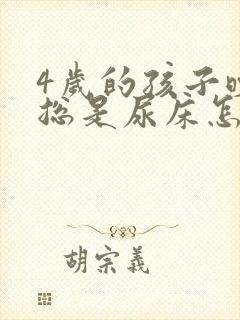 4岁的孩子晚
总是尿床怎
胡宗义